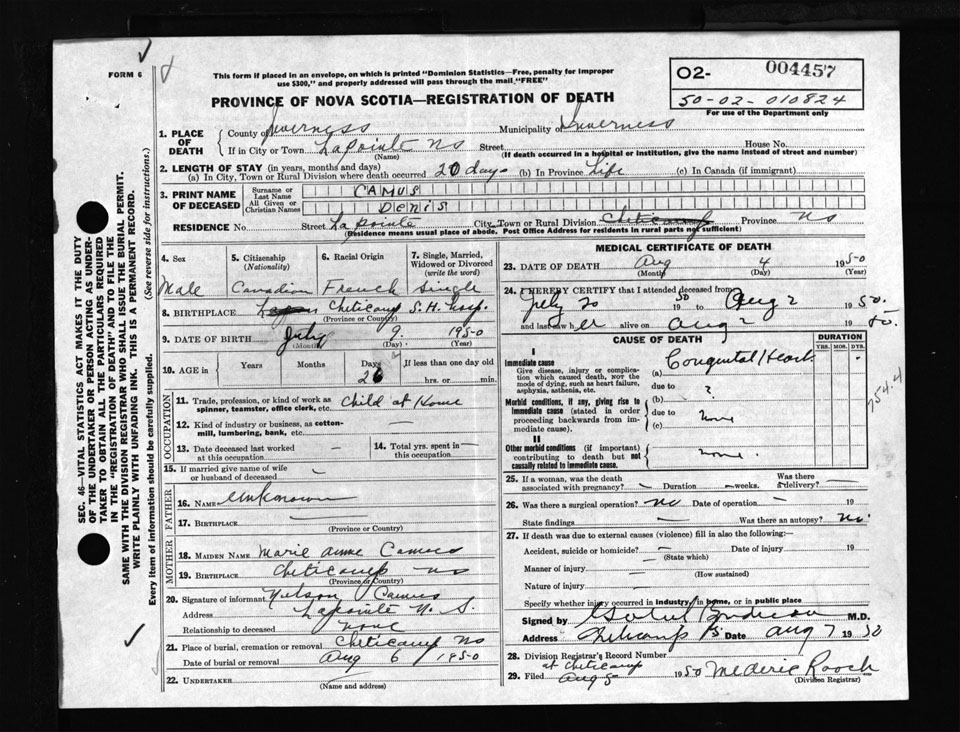 FORM 6
This form if placed in an envelope, on which is printed "Dominion Statistics—Free, penalty for improper
use $300," and properly addressed will pass through the mail "FREE"
PROVINCE OF NOVA SCOTIA—REGISTRATION OF DEATH
O2- 004457
50-02-010824
For use of the Department only
SEC. 46—VITAL STATISTICS ACT MAKES IT THE DUTY
OF THE UNDERTAKER OR PERSON ACTING AS UNDER-
TAKER TO OBTAIN ALL THE PARTICULARS REQUIRED
IN THE "REGISTRATION OF DEATH" AND TO FILE THE
SAME WITH THE DIVISION REGISTRAR WHO SHALL ISSUE THE BURIAL PERMIT.
WRITE PLAINLY WITH UNFADING INK. THIS IS A PERMANENT RECORD.
Every item of information should be carefully supplied. (See reverse side for instructions.)
1. PLACE OF DEATH
County of Inverness Municipality of Inverness
If in City or Town La pointe NS Street House No.
(Name) (If death occurred in a hospital or institution, give the name instead of street and number)
2. LENGTH OF STAY (in years, months and days)
(a) In City, Town or Rural Division where death occurred 20 days (b) In Province Life (c) In Canada (if immigrant)
3. PRINT NAME OF DECEASED
Surname or Last Name CAMUS
All Given or Christian Names DENIS
RESIDENCE No. Street La pointe City, Town or Rural Division Cheticamp Province NS
(Residence means usual place of abode. Post Office Address for residents in rural parts not sufficient)
4. Sex Male
5. Citizenship (Nationality) Canadian
6. Racial Origin French
7. Single, Married, Widowed or Divorced (write the word) Single
8. BIRTHPLACE Cheticamp S.H. Hosp.
(Province or Country)
9. DATE OF BIRTH July 9 1950
(Month) (Day) (Year)
10. AGE IN Years Months Days 26 If less than one day old
hrs. or min.
OCCUPATION
11. Trade, profession, or kind of work as
spinner, teamster, office clerk, etc. Child at Home
12. Kind of industry or business, as cotton-
mill, lumbering, bank, etc. —
13. Date deceased last worked
at this occupation —
14. Total yrs. spent in
this occupation —
15. If married give name of wife
or husband of deceased —
FATHER
16. NAME Unknown
17. BIRTHPLACE —
(Province or Country)
MOTHER
18. MAIDEN NAME Marie Anne Camus
19. BIRTHPLACE Cheticamp NS
(Province or Country)
20. Signature of informant Nelson Camus
Address Lapointe N. S.
Relationship to deceased none
21. Place of burial, cremation or removal Cheticamp NS
Date of burial or removal Aug 6 1950
22. UNDERTAKER
(Name and address)
MEDICAL CERTIFICATE OF DEATH
23. DATE OF DEATH Aug 4 1950
(Month) (Day) (Year)
24. I HEREBY CERTIFY that I attended deceased from
July 20 50 to Aug 2 1950.
and last saw h er alive on Aug 2 1950.
CAUSE OF DEATH
DURATION
YRS. MOS. DYS.
I
Immediate cause
Give disease, injury or complica-
tion which caused death, not the
mode of dying, such as heart failure,
asphyxia, asthenia, etc.
(a) Congenital Heart
due to
Morbid conditions, if any, giving rise to
immediate cause (stated in order
proceeding backwards from im-
mediate cause).
(b) ?
due to
(c) none
II
Other morbid conditions (if important)
contributing to death but not
causally related to immediate cause.
none.
754.4
25. If a woman, was the death
associated with pregnancy? Duration weeks. Was there delivery?
26. Was there a surgical operation? no Date of operation — 19
State findings — Was there an autopsy? no.
27. If death was due to external causes (violence) fill in also the following:
Accident, suicide or homicide? — Date of injury 19
(State which)
Manner of injury —
(How sustained)
Nature of injury —
Specify whether injury occurred in industry, in home, or in public place
Signed by M.D.
Address Date Aug 7 1950
28. Division Registrar's Record Number
at Cheticamp
29. Filed Aug 5 1950 Mederic Roach
(Division Registrar)